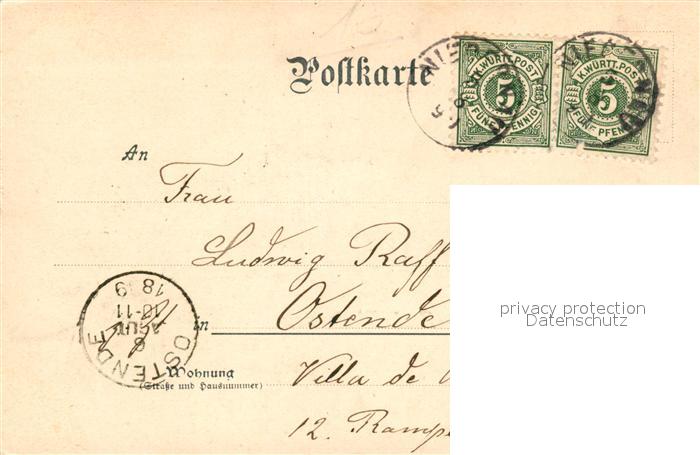 Postkarte
K. WÜRTT. POST
5
FÜNF PFENNIG
K. WÜRTT. POST
5
FÜNF PFENNIG
An
Frau
Ludwig Raff
in Ostende
Wohnung
(Straße und Hausnummer)
Villa de
12. Ramp
OSTENDE
10-11
privacy protection
Datenschutz